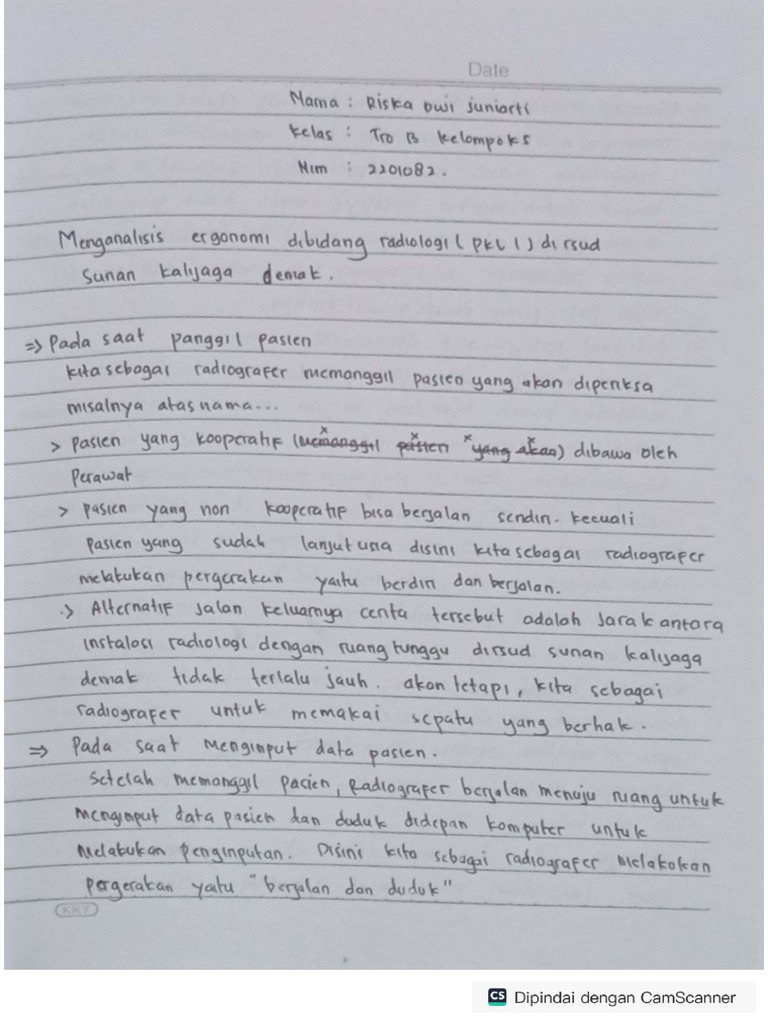 Date
Nama : Riska Dwi Juniarti
Kelas : Tro B Kelompok 5
Nim : 2201082.
Menganalisis ergonomi dibidang radiologi ( PKL 1 ) di rsud
Sunan kalijaga demak.
=> Pada saat panggil pasien
kita sebagai radiografer memanggil pasien yang akan diperiksa
misalnya atas nama...
> Pasien yang kooperatif (memanggil pasien yang akan) dibawa oleh
Perawat
> pasien yang non kooperatif bisa berjalan sendiri. kecuali
Pasien yang sudah lanjut usia disini kita sebagai radiografer
melakukan pergerakan yaitu berdiri dan berjalan.
.> Alternatif jalan keluarnya cerita tersebut adalah Jarak antara
instalasi radiologi dengan ruang tunggu dirsud sunan kalijaga
demak tidak terlalu jauh. akan tetapi, kita sebagai
radiografer untuk memakai sepatu yang berhak.
=> Pada saat Menginput data pasien.
Setelah memanggil pasien, Radiografer berjalan menuju ruang untuk
Menginput data pasien dan duduk didepan komputer untuk
Melakukan penginputan. Disini kita sebagai radiografer Melakokan
pergerakan yaitu "berjalan dan duduk"
KKY
CS Dipindai dengan CamScanner